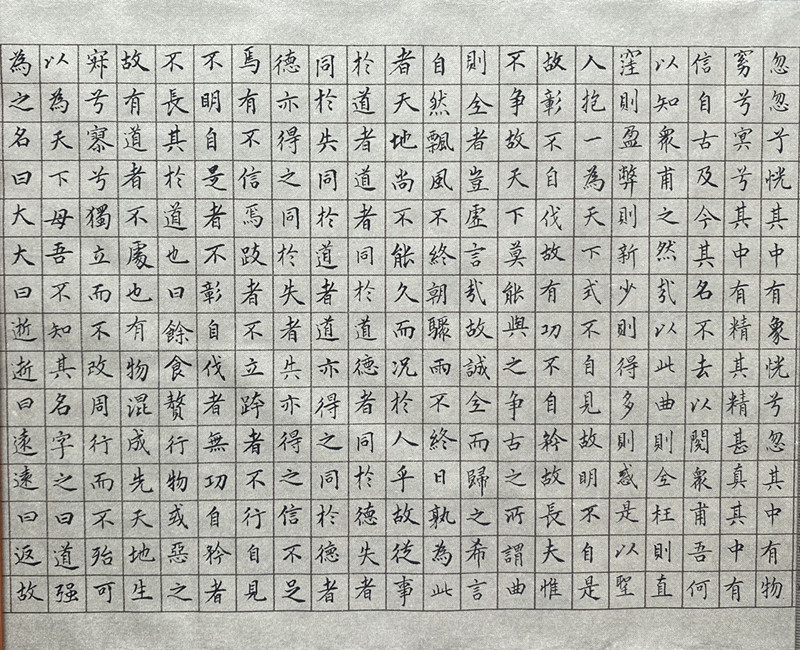 忽忽兮恍其中有象恍兮忽其中有物
窈兮冥兮其中有精其精甚真其中有
信自古及今其名不去以閱衆甫吾何
以知衆甫之然哉以此曲則全枉則直
窪則盈弊則新少則得多則惑是以聖
人抱一為天下式不自見故明不自是
故彰不自伐故有功不自矜故長夫惟
不争故天下莫能與之争古之所謂曲
則全者豈虛言哉故誠全而歸之希言
自然飄風不終朝驟雨不終日孰為此
者天地尚不能久而况於人乎故從事
於道者道者同於道德者同於德失者
同於失同於道者道亦得之同於德者
德亦得之同於失者失亦得之信不足
焉有不信焉跂者不立跨者不行自見
不明自是者不彰自伐者無功自矜者
不長其於道也曰餘食贅行物或惡之
故有道者不處也有物混成先天地生
寂兮寥兮獨立而不改周行而不殆可
以為天下母吾不知其名字之曰道强
為之名曰大大曰逝逝曰遠遠曰返故